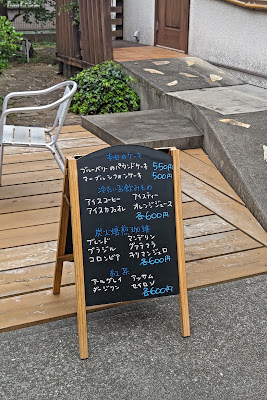 本日のケーキ
ブルーベリーのパウンドケーキ 550円
マーブルシフォンケーキ 500円
冷たいお飲みもの
アイスコーヒー アイスティー
アイスカフェオレ オレンジジュース
各600円
炭火焙煎珈琲
ブレンド マンデリン
ブラジル グァテマラ
コロンビア キリマンジャロ
各600円
紅茶
アールグレイ アッサム
ダージリン セイロン
各600円